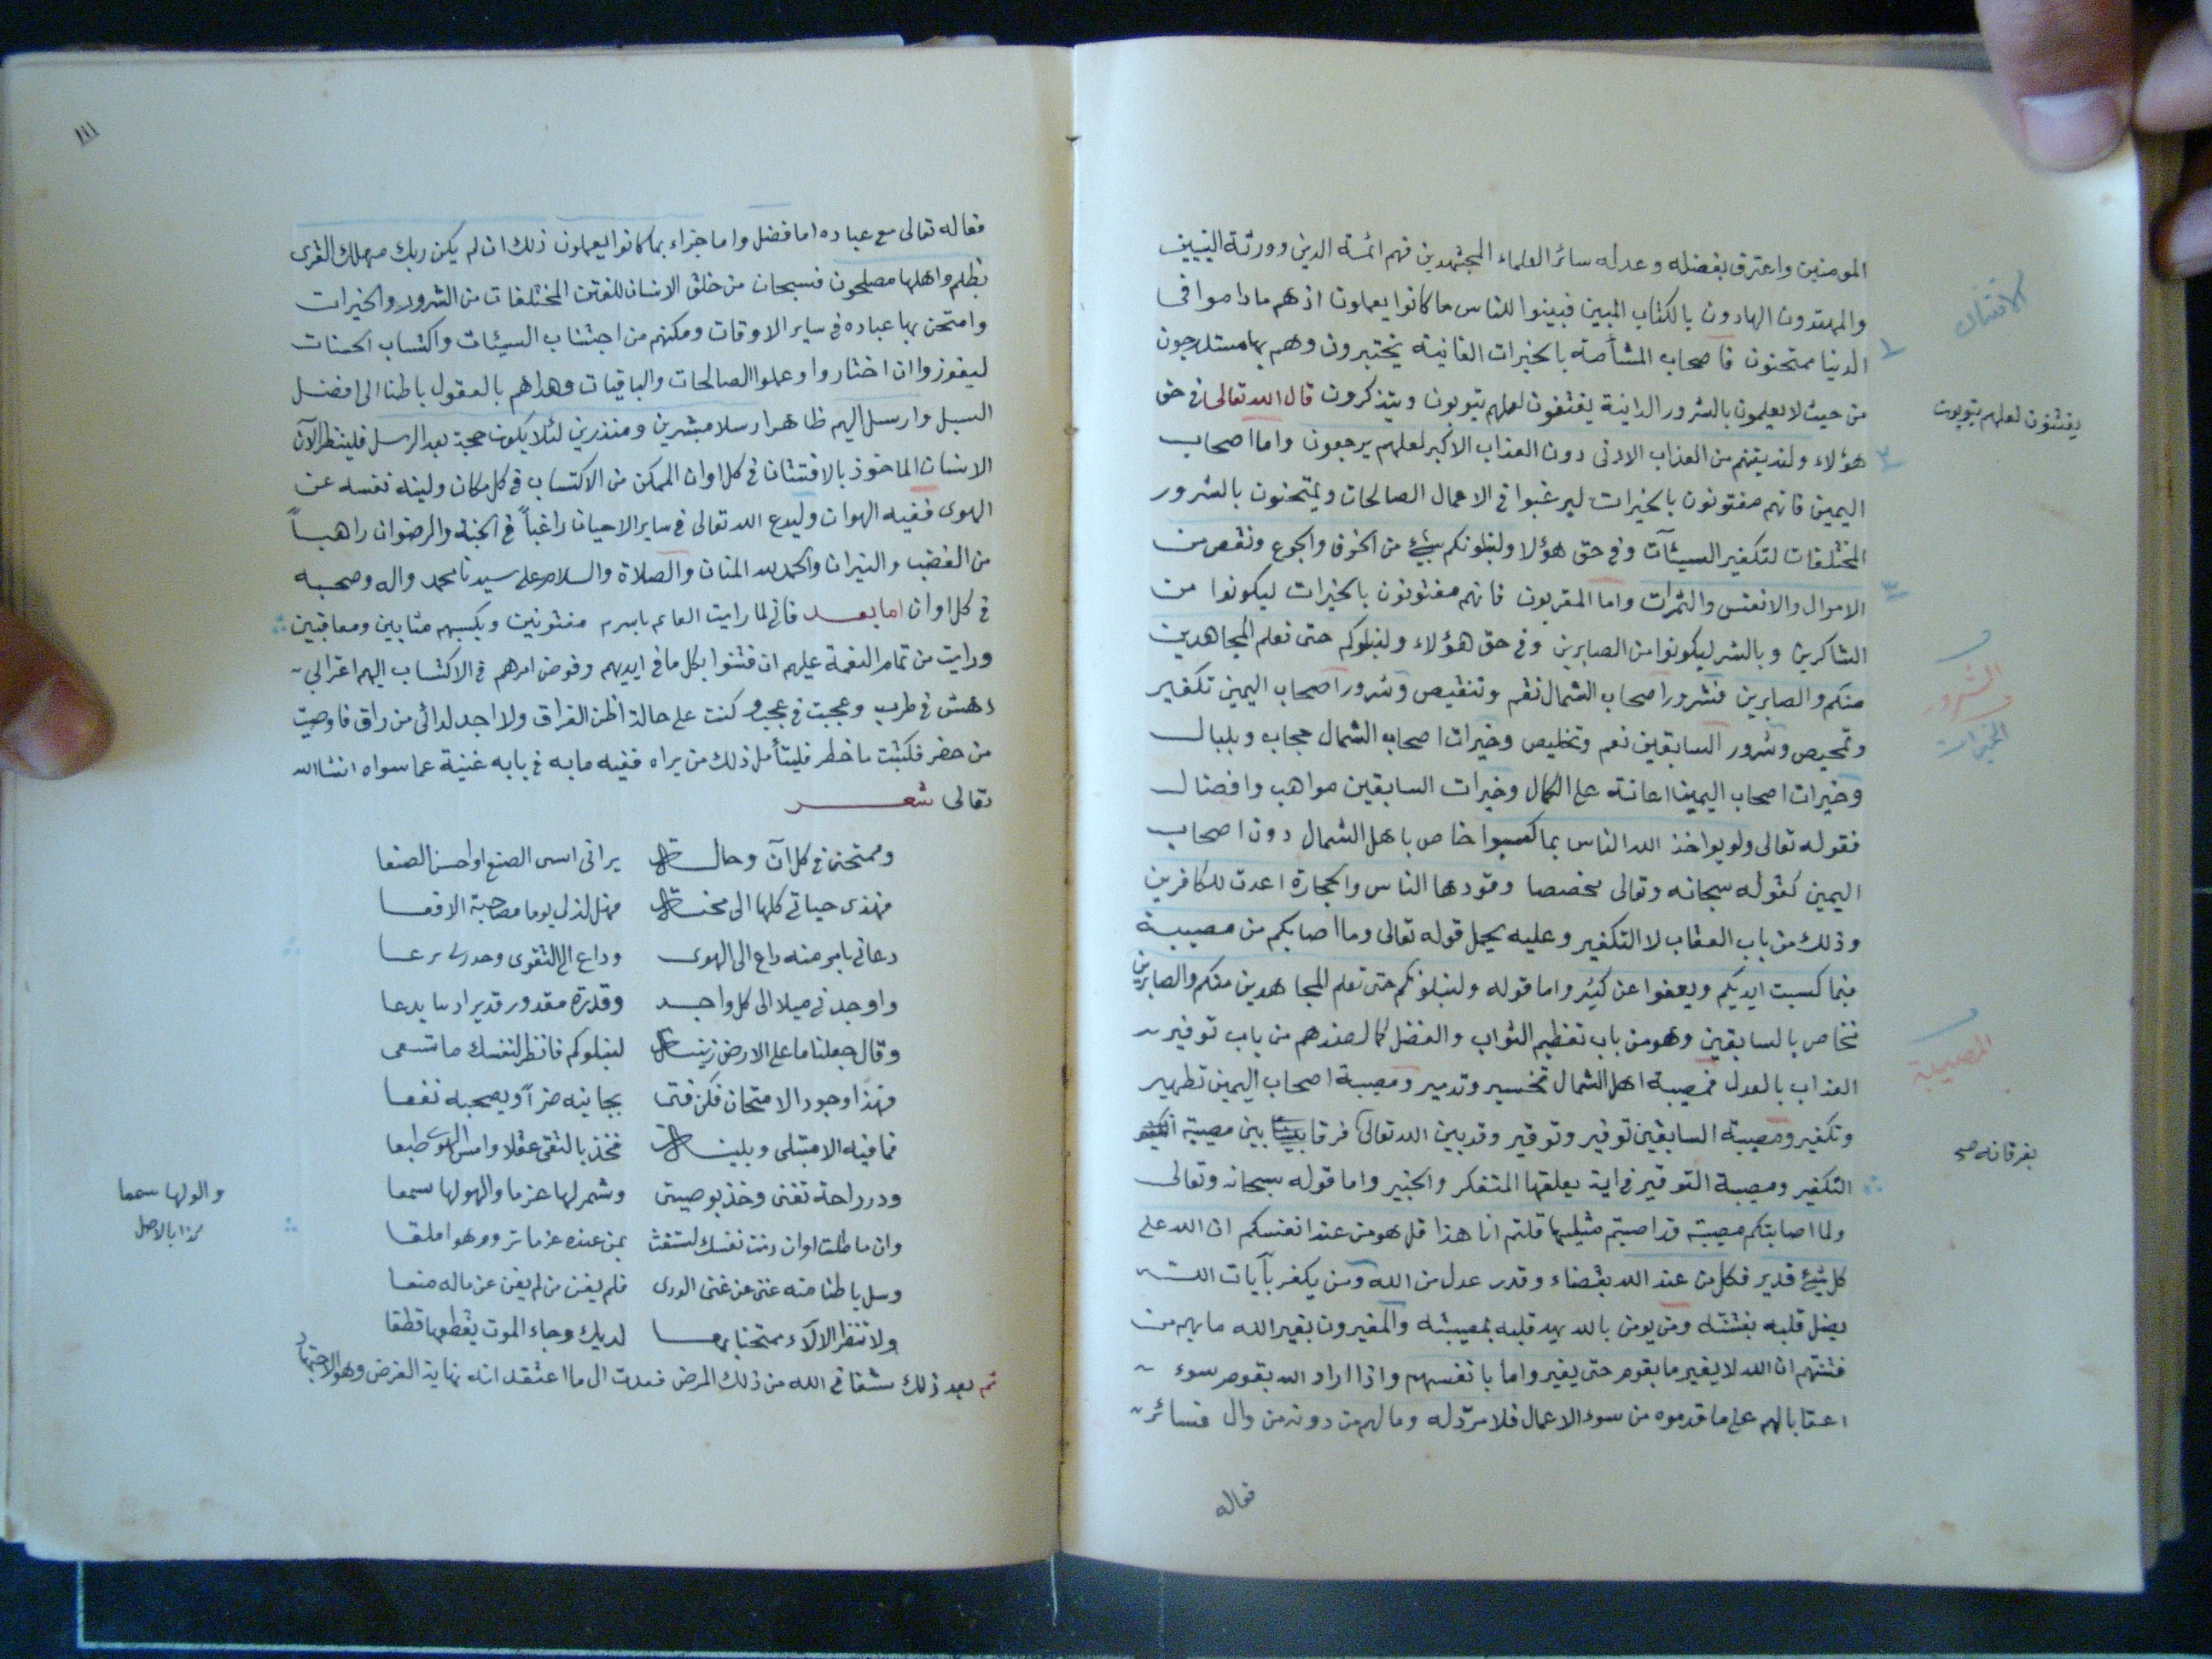 المومنين واعترف بفضله وعدله سائر العلماء المجتهدين فهم ائمة الدين وورثة النبيين
والمهتدون الهادون بالكتاب المبين فبينوا للناس ما كانوا يعملون اذ هم ما داموا في
الدنيا ممتحنون فاصحاب المشأمة بالخيرات الفانية يختبرون وهم بها مستدرجون
من حيث لا يعلمون بالشرور الدانية يفتنون لعلهم يتوبون ويتذكرون قال الله تعالى في حق
هؤلاء ولنذيقنهم من العذاب الادنى دون العذاب الاكبر لعلهم يرجعون واما اصحاب
اليمين فانهم مفتونون بالخيرات ليرغبوا في الاعمال الصالحات ويمتحنون بالشرور
المختلفات لتكفير السيئآت وفي حق هؤلا ولنبلونكم بشئ من الخوف والجوع ونقص من
الاموال والانفس والثمرات واما المقربون فانهم مفتونون بالخيرات ليكونوا من
الشاكرين وبالشر ليكونوا من الصابرين وفي حق هؤلاء ولنبلوكم حتى نعلم المجاهدين
منكم والصابرين فشرور اصحاب الشمال نقم وتنقيص وشرور اصحاب اليمين تكفير
وتمحيص وشرور السابقين نعم وتخليص وخيرات اصحاب الشمال حجاب وبلبال
وخيرات اصحاب اليمين اعانة على الكمال وخيرات السابقين مواهب وافضال
فقوله تعالى ولو يواخذ الله الناس بما كسبوا خاص باهل الشمال دون اصحاب
اليمين كقوله سبحانه وتعالى مخصصا وقودها الناس والحجارة اعدت للكافرين
وذلك من باب العقاب لا التكفير وعليه يحمل قوله تعالى وما اصابكم من مصيبة
فبما كسبت ايديكم ويعفوا عن كثير واما قوله ولنبلونكم حتى نعلم المجاهدين منكم والصابرين
فخاص بالسابقين وهو من باب تعظيم الثواب والفضل كما لضدهم من باب توفير
العذاب بالعدل فمصيبة اهل الشمال تخسير وتدمير ومصيبة اصحاب اليمين تطهير
وتكفير ومصيبة السابقين توفير وتوقير وقد بين الله تعالى فرقا بين مصيبة
التكفير ومصيبة التوقير في اية يعلقها المتفكر والخبير واما قوله سبحانه وتعالى
ولما اصابتكم مصيبة قد اصبتم مثليها قلتم انا هذا قل هو من عند انفسكم ان الله على
كل شئ قدير فكل من عند الله بقضاء وقدر عدل من الله ومن يكفر بآيات الله
يضل قلبه بفتنته ومن يومن بالله يهد قلبه بمصيبته والمغيرون بغير الله ما بهم من
فتنتهم ان الله لا يغير ما بقوم حتى يغيروا ما بانفسهم واذا اراد الله بقوم سوء
اعقابا لهم على ما قدموه من سوء الاعمال فلا مرد له وما لهم من دونه من وال فسائر
فعاله
الافتتان
يفتنون لعلهم يتوبون
الشرور
و
الخيرات
المصيبة
بفرقانه صح
١١١
فعاله تعالى مع عباده اما فضل واما جزاء بما كانوا يعملون ذلك ان لم يكن ربك مهلك القرى
بظلم واهلها مصلحون فسبحان من خلق الانسان للفتن المختلفات من الشرور والخيرات
وامتحن بها عباده في ساير الاوقات ومكنهم من اجتناب السيئات واكتساب الحسنات
ليفوزوا ان اختاروا وعملوا الصالحات والباقيات وهداهم بالعقول باطنا الى افضل
السبل وارسل اليهم ظاهرا رسلا مبشرين ومنذرين لئلا يكون حجة بعد الرسل فلينظر الآن
الانسان الماخوذ بالافتتان في كل اوان الممكن من الاكتساب في كل مكان ولينه نفسه عن
الهوى ففيه الهوان وليدع الله تعالى في ساير الاحيان راغباً في الجنة والرضوان راهباً
من الغضب والنيران والحمد لله المنان والصلاة والسلام على سيدنا محمد واله وصحبه
في كل اوان اما بعد فاني لما رايت العالم باسره مفتونين وبكسبهم مثابين ومعاقبين
ورايت من تمام النعمة عليهم ان فتنوا بكل ما في ايديهم وفوض امرهم في الاكتساب اليهم اعتراني
دهش في طرب وعجبت في عجب وكنت على حالة اظن الفراق ولا اجد لدائي من راق فاوصيت
من حضر فكتبت ما خطر فليتأمل ذلك من يراه ففيه ما به في بابه غنية عما سواه انشا الله
تعالى شعر
وممتحن في كل آن وحالة يراني اسى الصنع او احسن الصنعا
فهذى حياتي كلها الى محنة فهل لذلي يوما مصاحبة الافعا
دعاني بامر منه داع الى الهوى وداع الى التقوى
واوجد في ميلا الى كل واحد وقدرة مقدور قدير
وقال جعلنا ما على الارض زينة لنبلوكم فانظر لنفسك ما تسعى
فهذا وجود الامتحان فكن فتى يجانبه ضراً ويصحبه نفعا
فما فيه الا مبتلى وبلية فخذ بالتقى عقلا وامس الهوى طبعا
ودر راحة تفنى وخذ بوصيتى وشمر لها حزما والهو لها سمعا
وان ما طلت اوان دنت نفسك لستغث بمن عنده
وسل باطنا منه غنى عن غنى الورى فلم يغن من لم يغن عن ماله منعا
ولا تنظر الآلاء ممتحنا بها لديك وجاء الموت يقطعها قطعا
ثم بعد ذلك شفاني الله من ذلك المرض فعدت الى ما اعتقد انه نهاية الغرض وهو الاجتهاد
والولها سمعا
كذا بالاصل